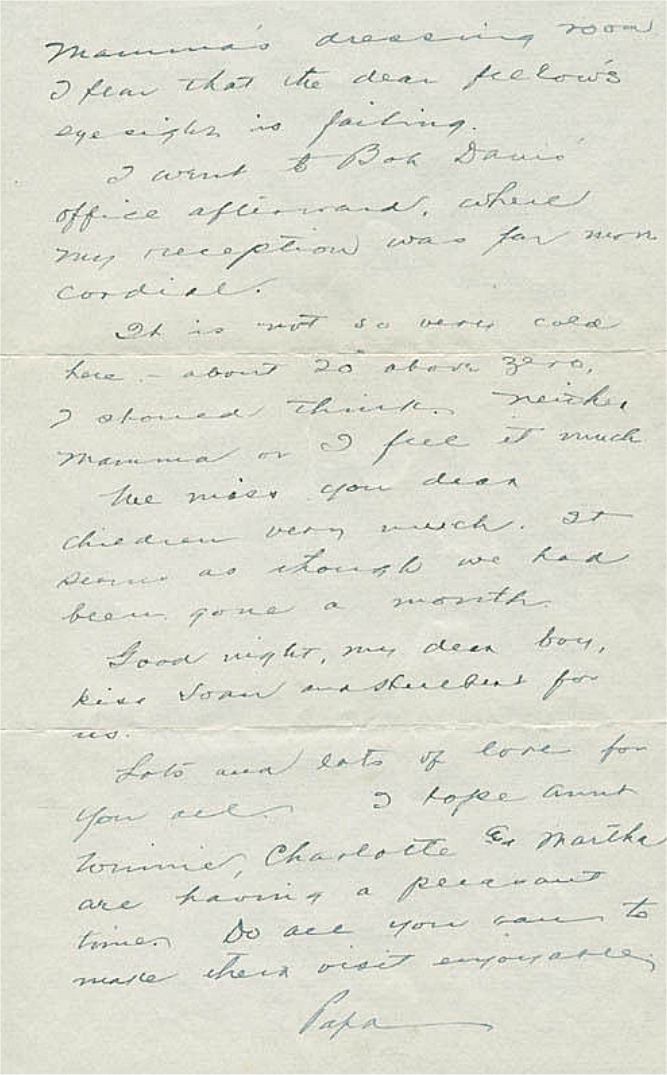 Mamma's dressing room
I fear that the dear fellow's
eyesight is failing.
I went to Bob Davis'
office afterward, where
my reception was far more
cordial.
It is not so very cold
here - about 20 above zero,
I should think. Neither
Mamma or I feel it much
We miss you dear
children very much. It
seems as though we had
been gone a month.
Good night, my dear boy,
kiss Joan and Hulbert for
us.
Lots and lots of love for
you all. I hope Aunt
Winnie, Charlotte & Martha
are having a pleasant
time. Do all you can to
make their visit enjoyable.
Papa